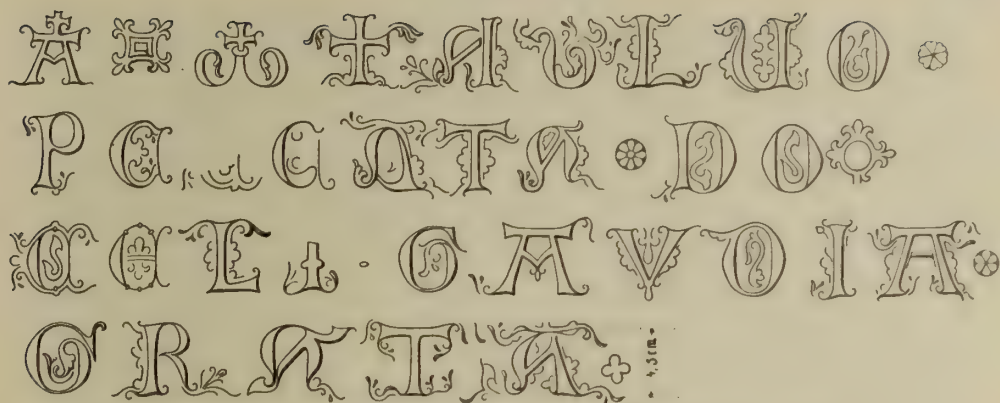 A TAULUO
PE CATA DO
CEL GAVDIA
GRATA 4,3 cm.